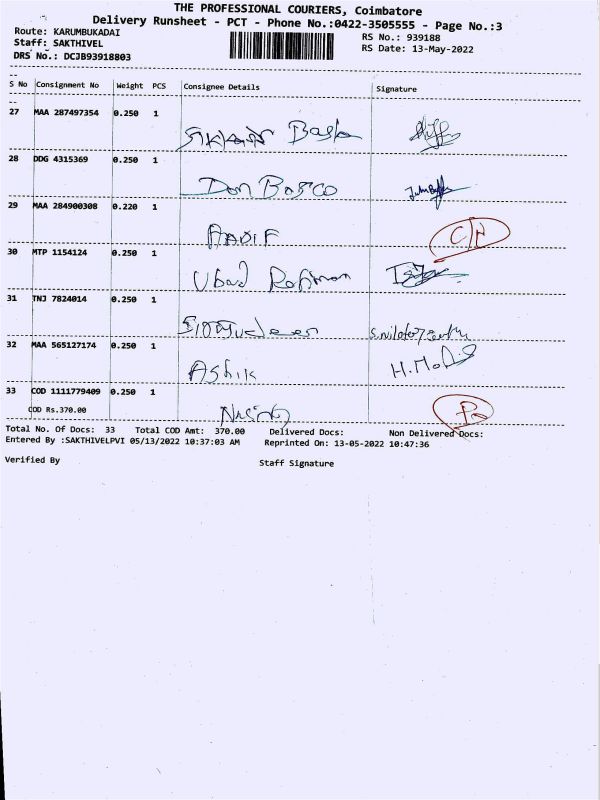 THE PROFESSIONAL COURIERS, Coimbatore
Delivery Runsheet - PCT - Phone No.:0422-3505555 - Page No.:3
Route: KARUMBUKADAI RS No.: 939188
Staff: SAKTHIVEL RS Date: 13-May-2022
DRS No.: DCJB93918803
S No Consignment No Weight PCS Consignee Details Signature
27 MAA 287497354 0.250 1
28 DDG 4315369 0.250 1
Don Bosco
29 MAA 284900308 0.220 1
AADIF
30 MTP 1154124 0.250 1
Ubad Rahman
31 TNJ 7824014 0.250 1
32 MAA 565127174 0.250 1
Ashik
33 COD 1111779409 0.250 1
COD Rs.370.00
Total No. Of Docs: 33 Total COD Amt: 370.00 Delivered Docs: Non Delivered Docs:
Entered By :SAKTHIVELPVI 05/13/2022 10:37:03 AM Reprinted On: 13-05-2022 10:47:36
Verified By Staff Signature